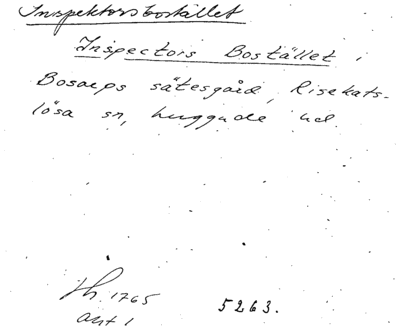 Inspektorsbostället
Inspectors Bostället i
Bosarps sätesgård, Risekats-
lösa sn, huggude hd.
th. 1765
Akt 1
5263.